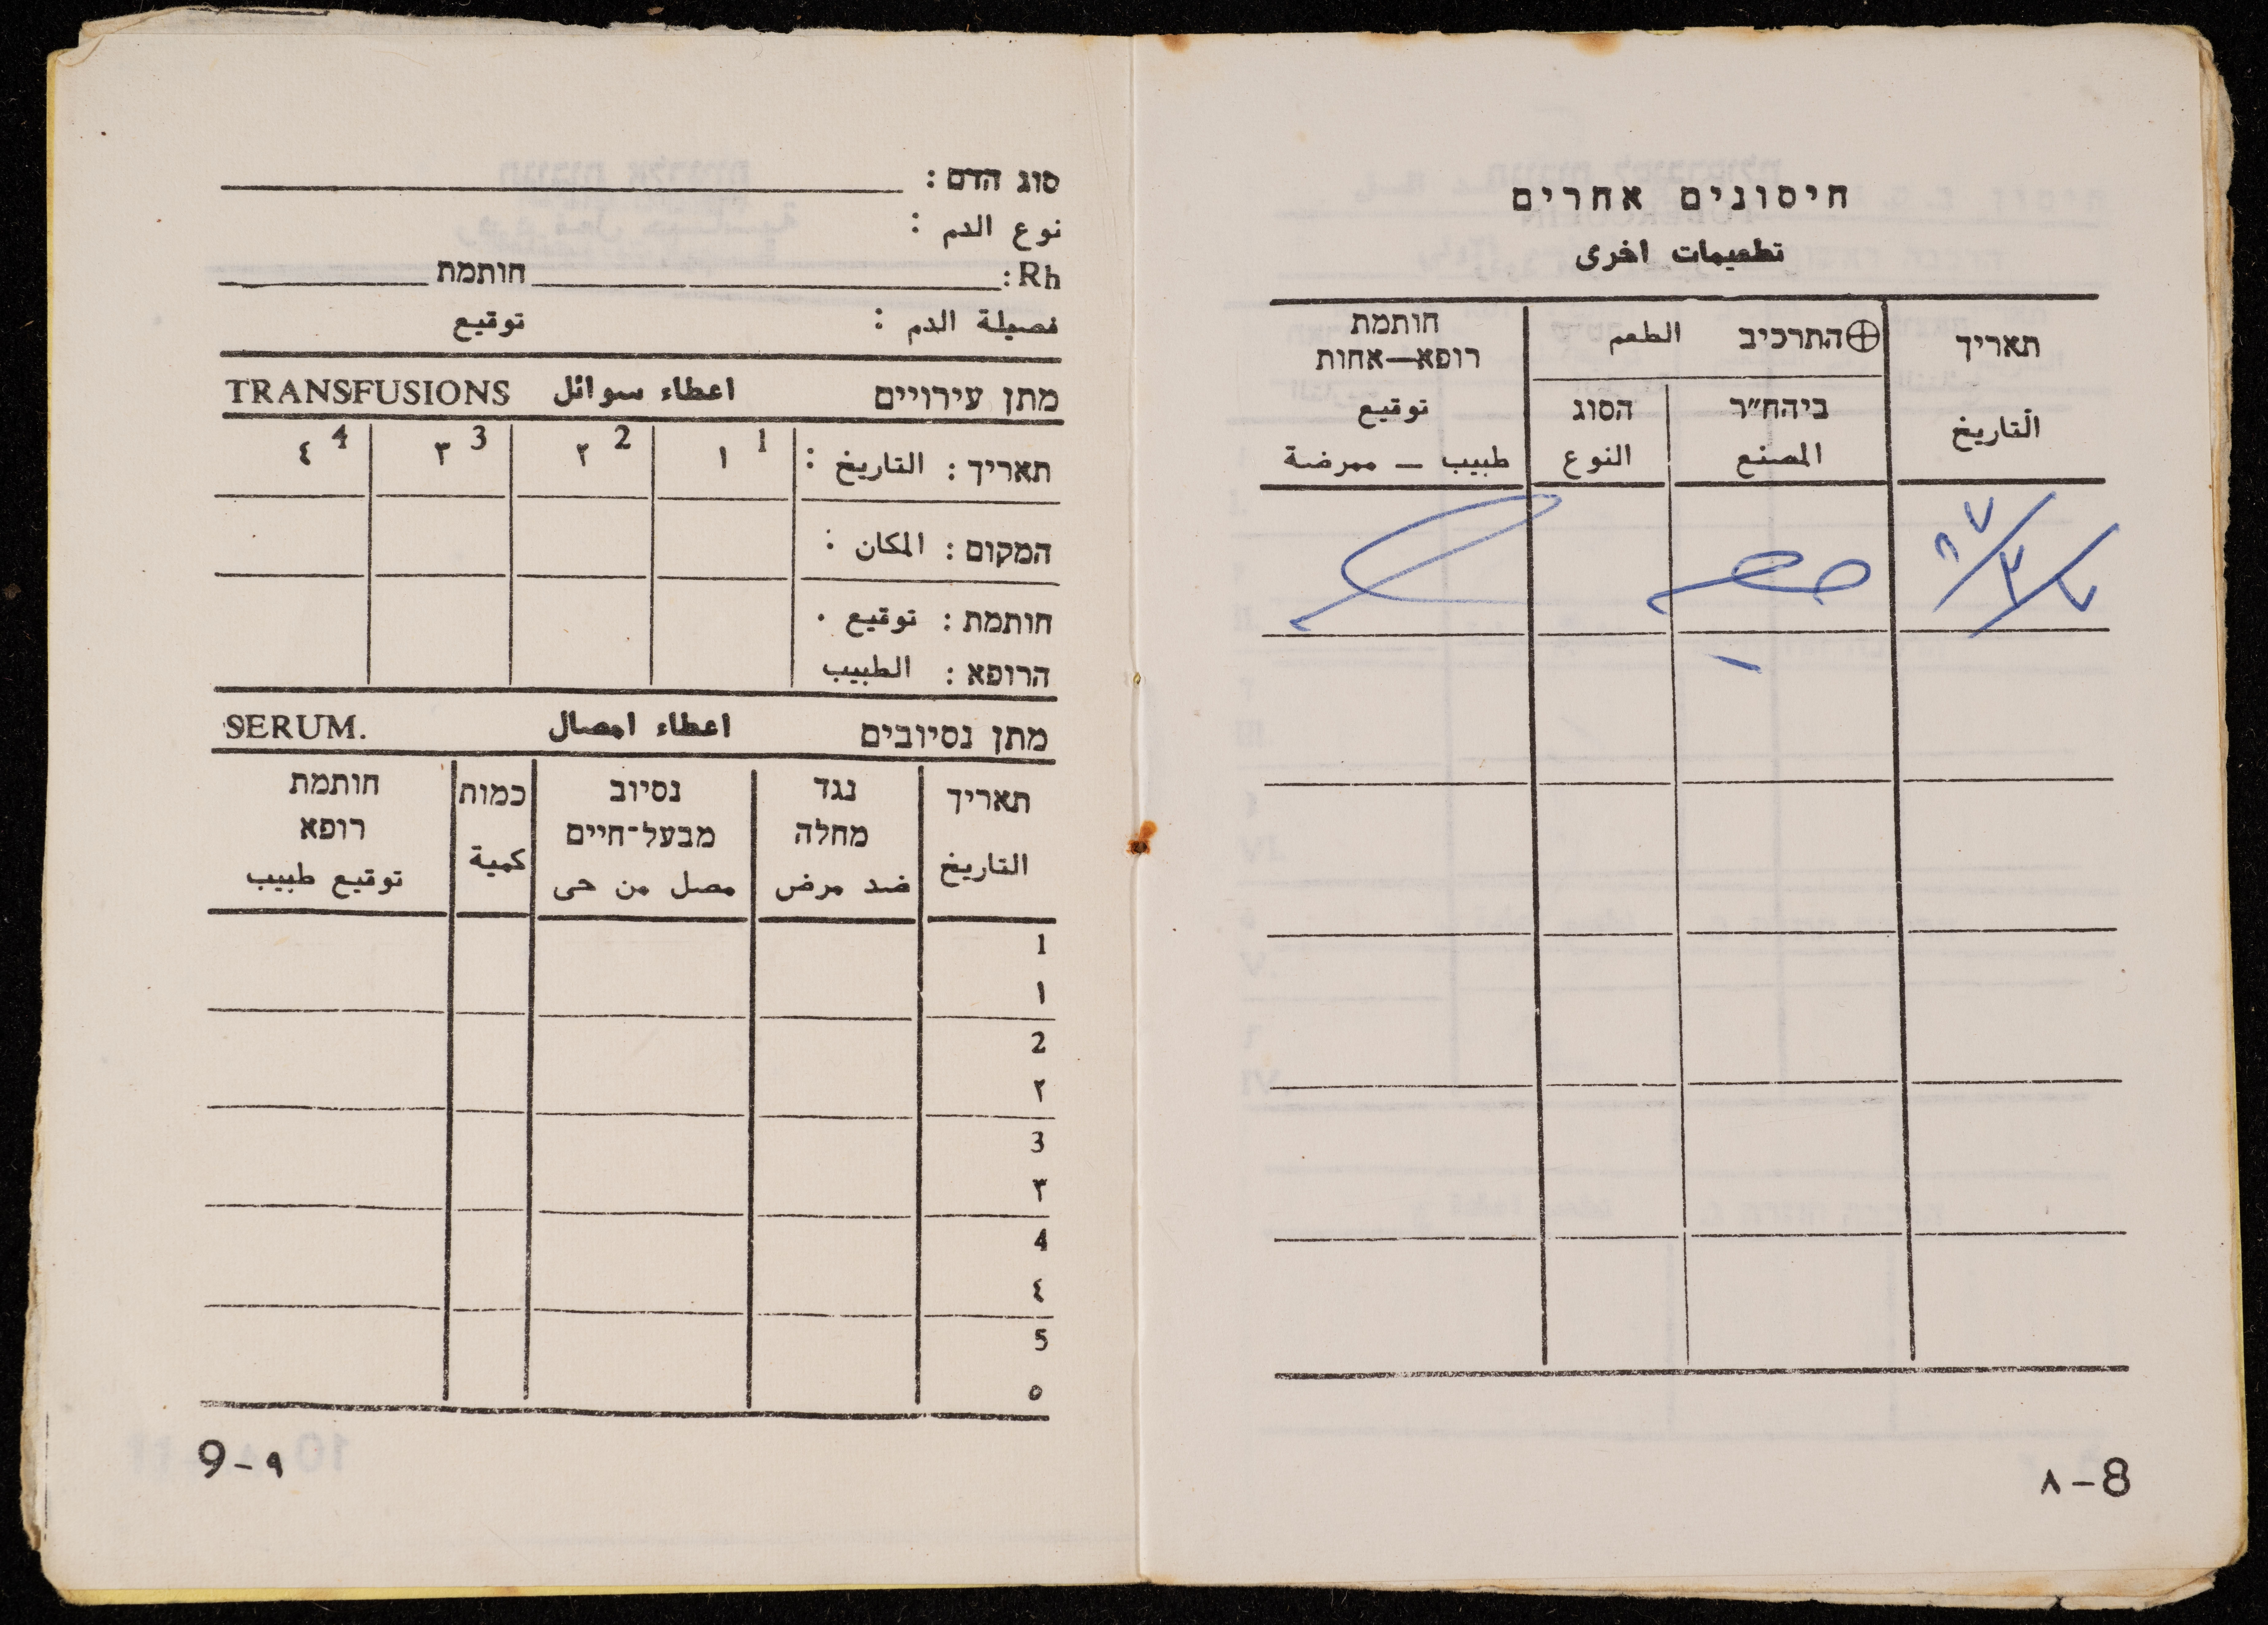 חיסונים אחרים
تطعيمات اخرى
תאריך
التاريخ
⊕התרכיב الطعم
ביהח״ר
المصنع
הסוג
النوع
חותמת
רופא—אחות
توقيع
طبيب — ممرضة
٨-8
סוג הדם :
نوع الدم :
Rh: חותמת
فصيلة الدم : توقيع
מתן עירויים اعطاء سوائل TRANSFUSIONS
תאריך : التاريخ : 1 ١ 2 ٢ 3 ٣ 4 ٤
המקום : المكان :
חותמת : توقيع .
הרופא : الطبيب
מתן נסיובים اعطاء امصال SERUM.
תאריך
التاريخ
נגד
מחלה
ضد مرض
נסיוב
מבעל-חיים
مصل من حى
כמות
كمية
חותמת
רופא
توقيع طبيب
1
١
2
٢
3
٣
4
٤
5
٥
9-٩